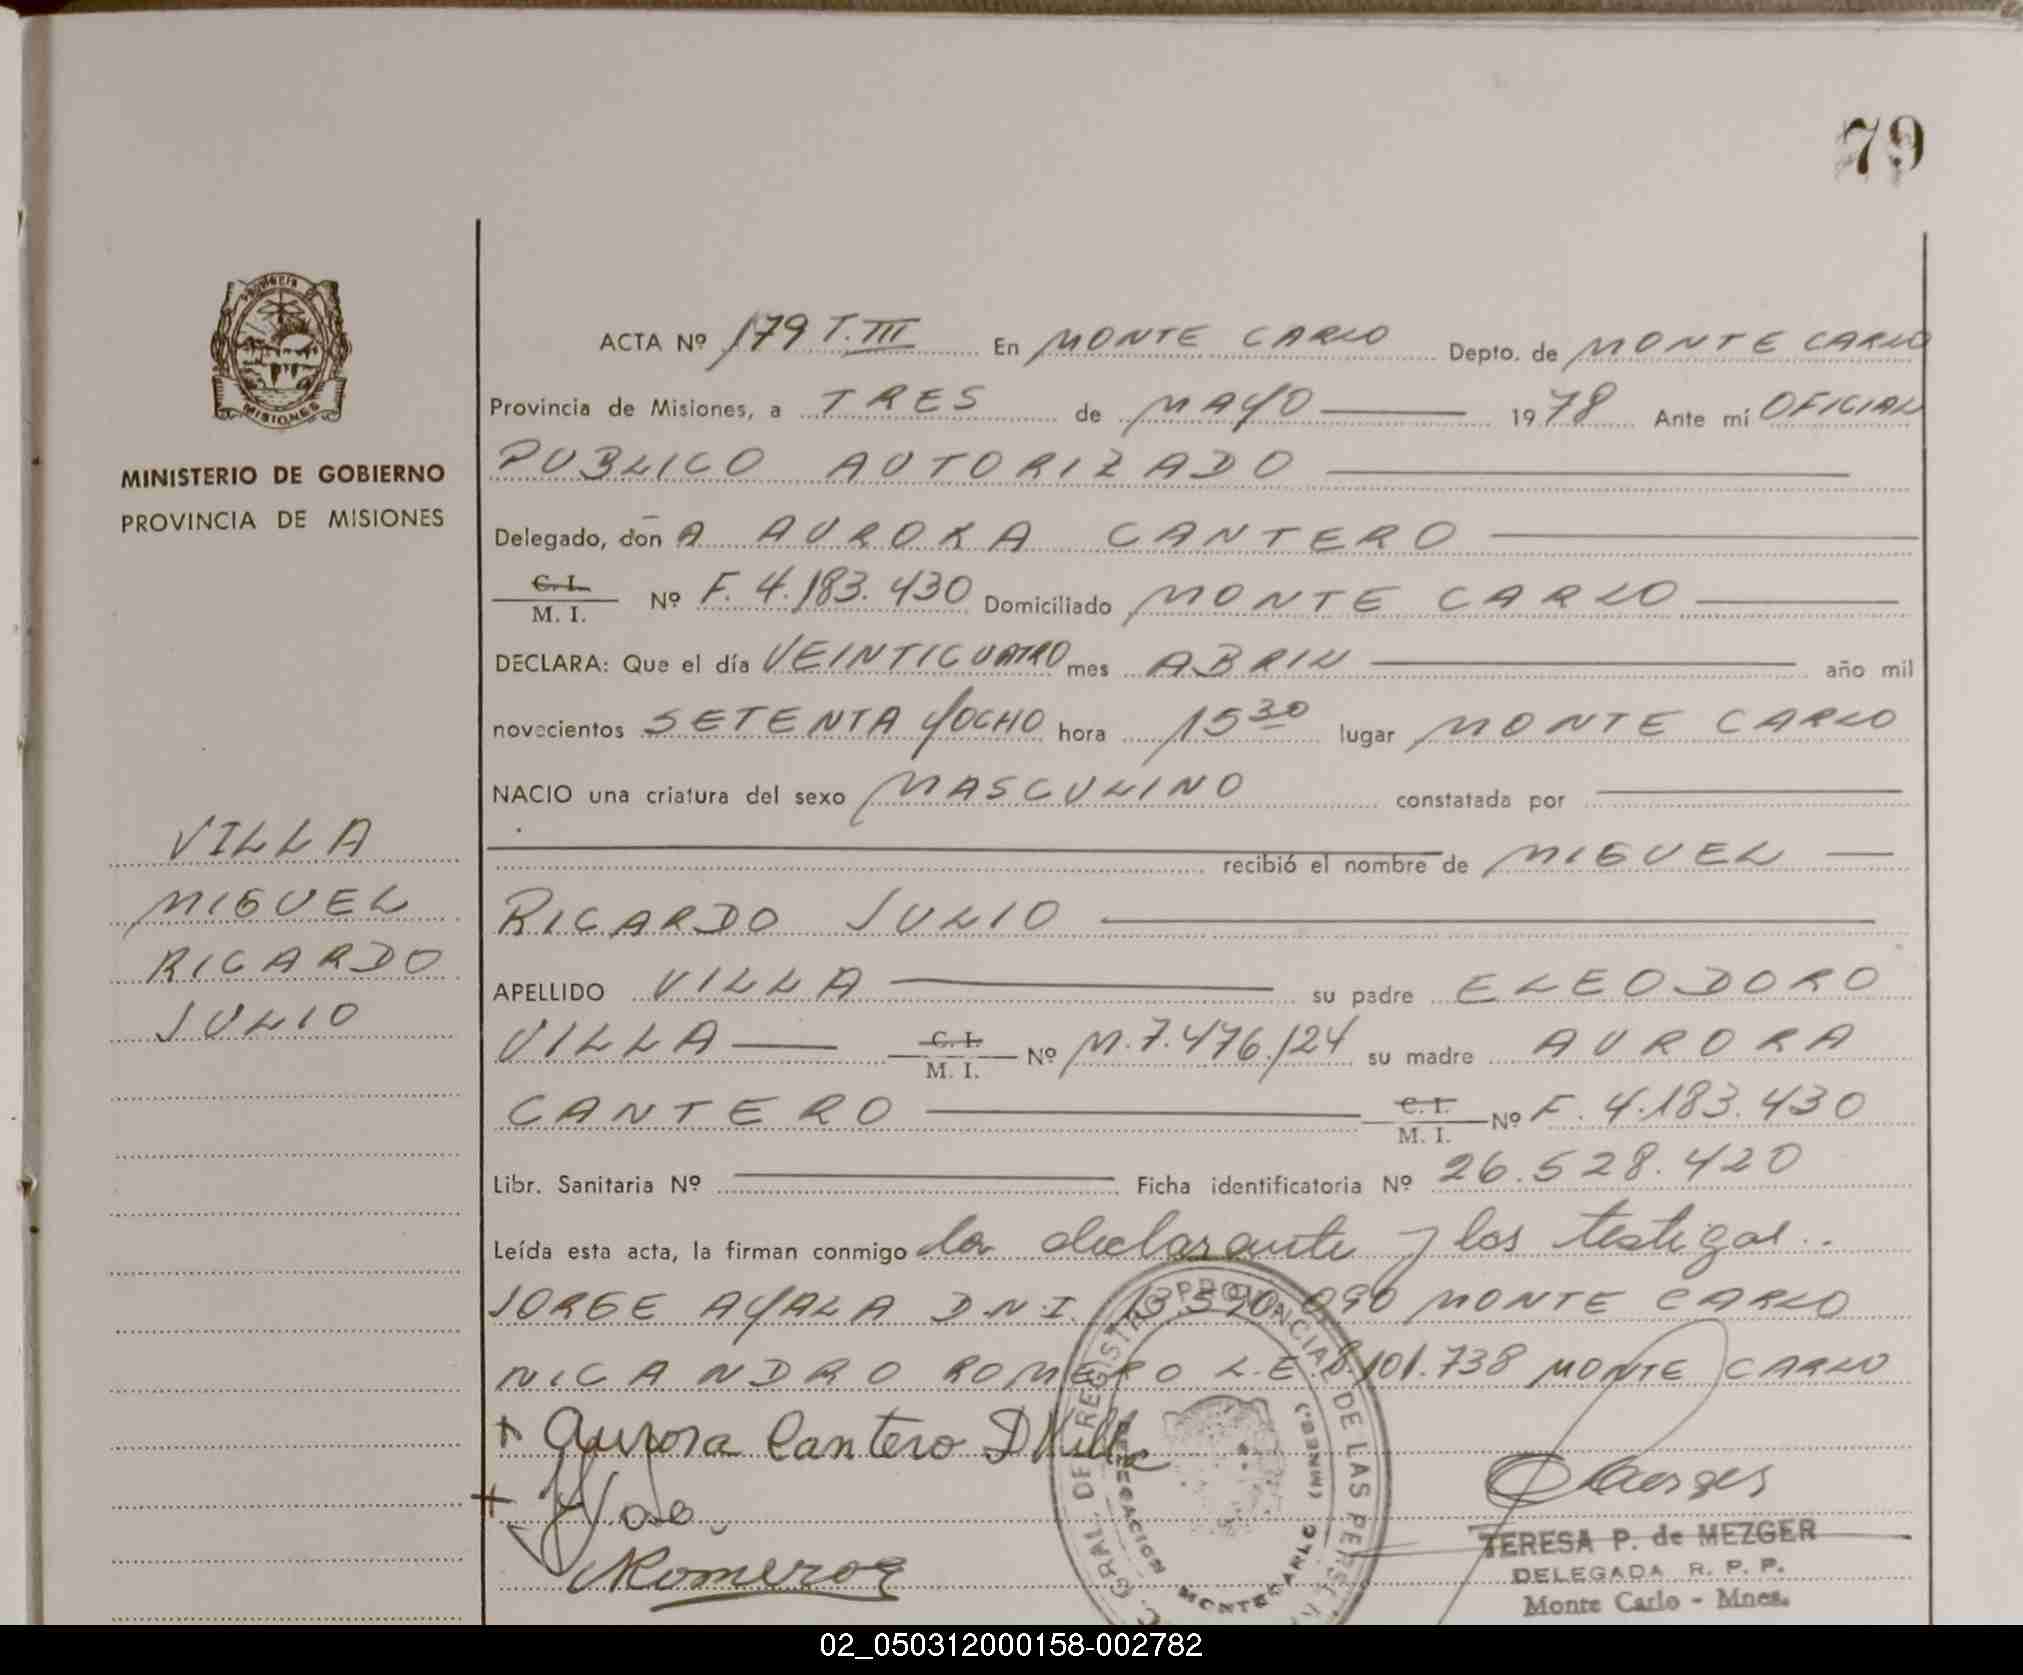 79
Provincia de
MISIONES
MINISTERIO DE GOBIERNO
PROVINCIA DE MISIONES
VILLA
MIGUEL
RICARDO
JULIO
ACTA Nº 179 T. III En MONTE CARLO Depto. de MONTE CARLO
Provincia de Misiones, a TRES de MAYO 1978 Ante mí OFICIAL
PUBLICO AUTORIZADO
Delegado, doñA AURORA CANTERO
C. I.
M. I. Nº F. 4.183.430 Domiciliado MONTE CARLO
DECLARA: Que el día VEINTICUATRO mes ABRIL año mil
novecientos SETENTA YOCHO hora 15 30 lugar MONTE CARLO
NACIO una criatura del sexo MASCULINO constatada por
recibió el nombre de MIGUEL
RICARDO JULIO
APELLIDO VILLA su padre ELEODORO
VILLA C. I. M. I. Nº M. 7.476.124 su madre AURORA
CANTERO C. I. M. I. Nº F. 4.183.430
Libr. Sanitaria Nº Ficha identificatoria Nº 26.528.420
Leída esta acta, la firman conmigo la declarante y los testigos..
JORGE AYALA D.N.I. MONTE CARLO
NICANDRO ROMERO L.E. 8.101.738 MONTE CARLO
+ Aurora Cantero D Villa
+
Romero
GRAL. DE REGISTRO PROVINCIAL DE LAS
DELEGACION MONTECARLO (MNES.)
TERESA P. de MEZGER
DELEGADA R. P. P.
Monte Carlo - Mnes.
02_050312000158-002782